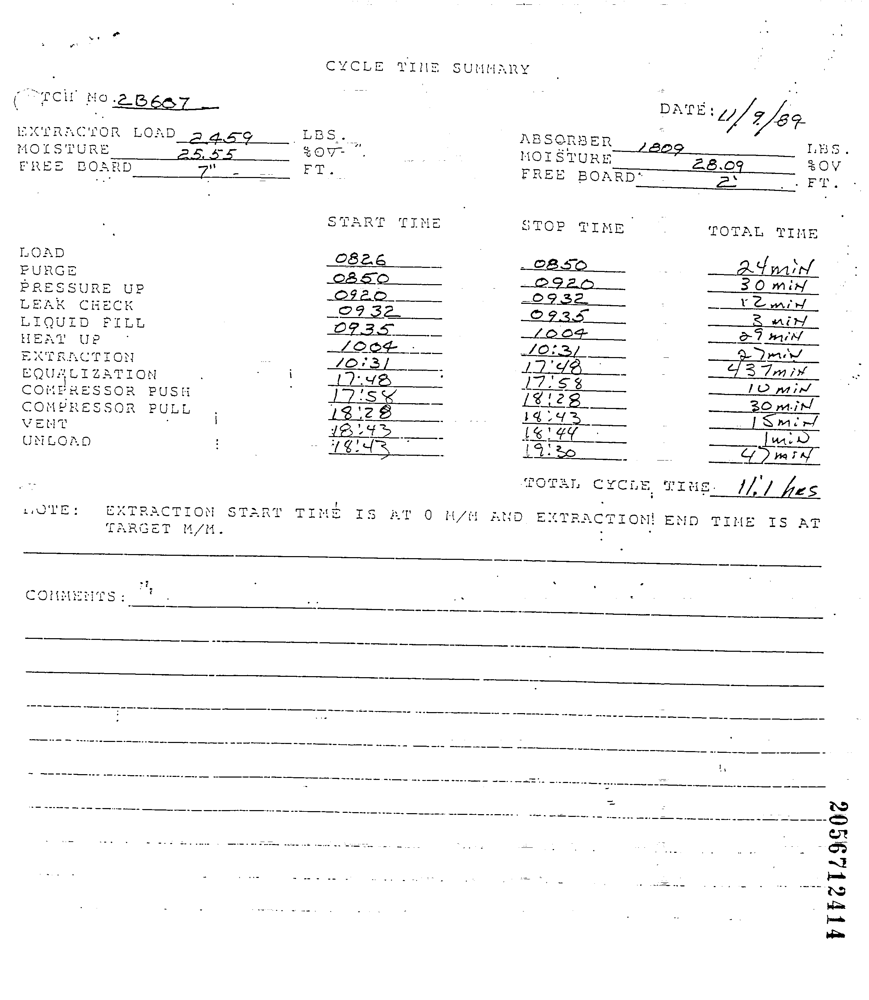 CYCLE TIME SUMMARY
TCH NO. 2B607
DATE: 11/9/89
EXTRACTOR LOAD 2459 LBS. ABSORBER 1809 LBS.
MOISTURE 25.55 %OV MOISTURE 28.09 %OV
FREE BOARD 7" FT. FREE BOARD 2' FT.
START TIME STOP TIME TOTAL TIME
LOAD 0826 0850 24 min
PURGE 0850 0920 30 min
PRESSURE UP 0920 0932 12 min
LEAK CHECK 0932 0935 3 min
LIQUID FILL 0935 1004 29 min
HEAT UP 1004 10:31 27 min
EXTRACTION 10:31 17:48 437 min
EQUALIZATION 17:48 17:58 10 min
COMPRESSOR PUSH 17:58 18:28 30 min
COMPRESSOR PULL 18:28 18:43 15 min
VENT 18:43 18:44 1 min
UNLOAD 18:43 19:30 47 min
TOTAL CYCLE TIME 11.1 hrs
NOTE: EXTRACTION START TIME IS AT 0 M/M AND EXTRACTION END TIME IS AT
TARGET M/M.
COMMENTS:
2056712414